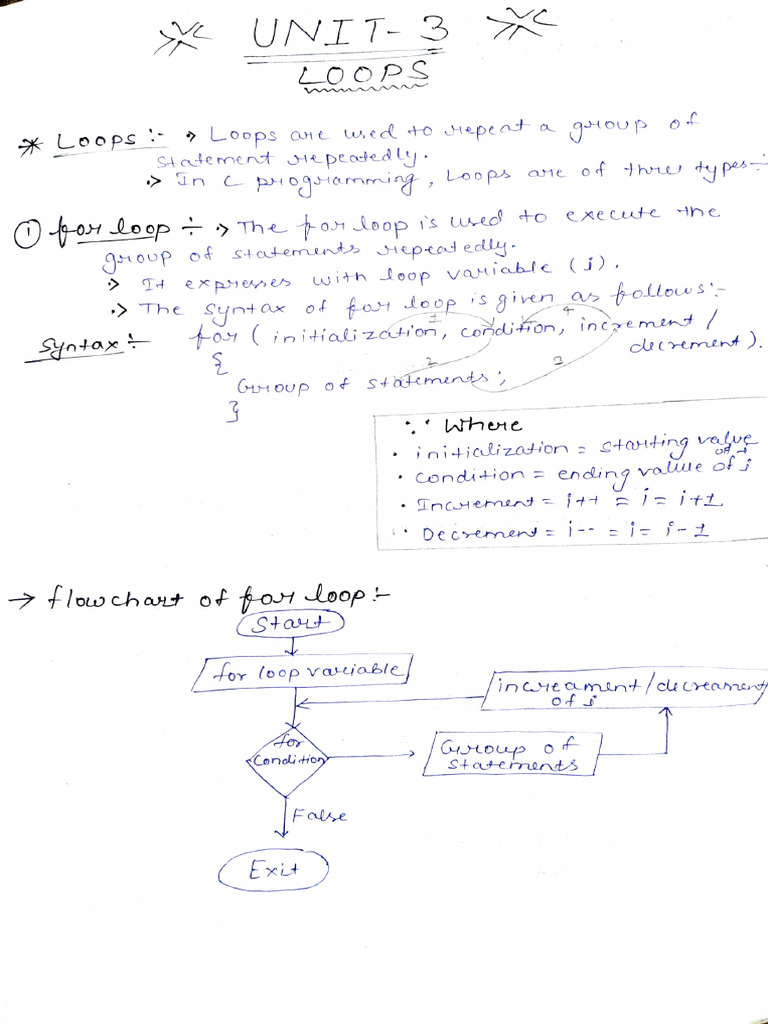 UNIT-3
LOOPS
* Loops :- → Loops are used to repeat a group of
statement repeatedly.
→ In C programming, Loops are of three types :-
① for loop :- → The for loop is used to execute the
group of statements repeatedly.
→ It expresses with loop variable (i).
→ The syntax of for loop is given as follows:-
Syntax :- for ( initialization, condition, increment /
decrement).
1
4
2
3
{
Group of statements ;
}
∵ Where
• initialization = starting value
of i
• condition = ending value of i
• Increment = i++ = i = i+1
• Decrement = i-- = i = i-1
→ flowchart of for loop :-
Start
for loop variable
increament/decreament
of i
for
condition
Group of
statements
False
Exit